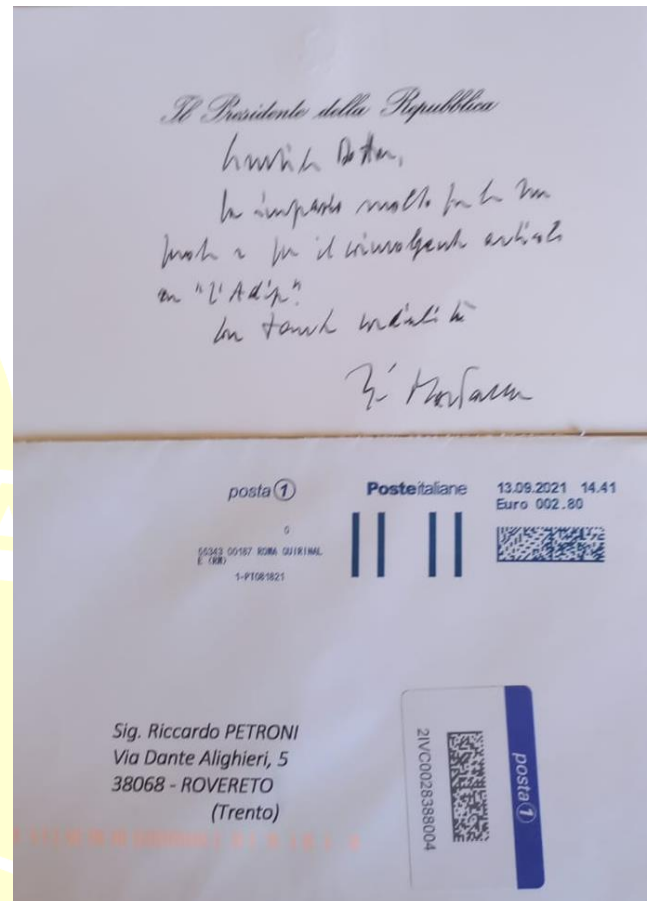 Il Presidente della Repubblica
molto
e per il coinvolgente articolo
su "l'Adige".
Con tanta cordialità
posta 1
Posteitaliane
13.09.2021 14.41
Euro 002.80
55343 00187 ROMA QUIRINAL
E (RM)
1-PT081821
Sig. Riccardo PETRONI
Via Dante Alighieri, 5
38068 - ROVERETO
(Trento)
2IVC0028388004
posta 1